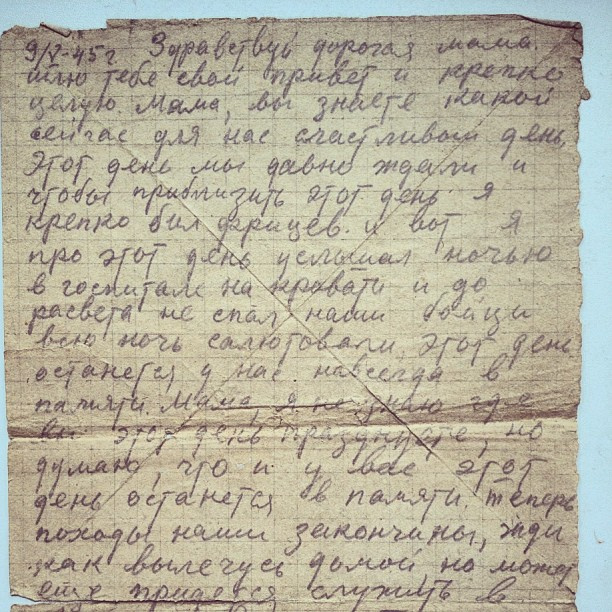 9/V-45г Здравствуй дорогая мама.
шлю тебе свой привет и крепко
целую. Мама, вы знаете какой
сейчас для нас счастливый день,
Этот день мы давно ждали и
чтобы приблизить этот день я
крепко бил фрицев. и вот я
про этот день услышал ночью
в госпитале на кравати и до
расвета не спал наши бойцы
всю ночь салютовали, этот день
останется у нас навсегда в
памяти. Мама, я не знаю где
вы этот день празднуете, но
думаю, что и у вас этот
день останется в памяти. Теперь
походы наши закончины, жди
как вылечусь домой но может
еще придется служить в